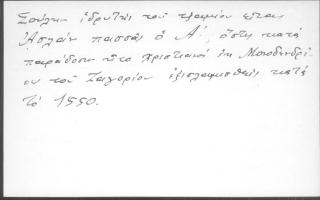 ἱδρυτὴς τοῦ τζαμίου εἶναι
Ἀσλὰν πασσᾶς ὁ Α΄, ὅστις κατὰ
παράδοσιν ἦτο χριστιανὸς ἐκ Μονοδενδρί-
ου τοῦ Ζαγορίου ἐξισλαμισθεὶς κατὰ
τὸ 1550.